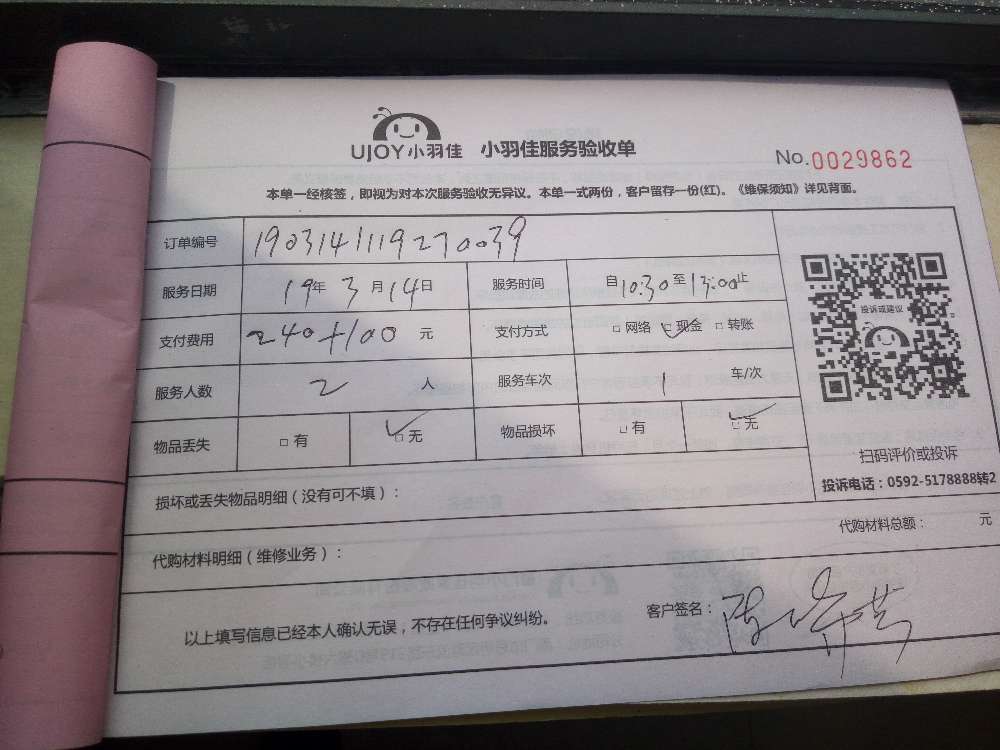 UJOY小羽佳 小羽佳服务验收单
No.0029862
本单一经核签，即视为对本次服务验收无异议。本单一式两份，客户留存一份(红)。《维保须知》详见背面。
订单编号 1903141119270039
服务日期 19年3月14日 服务时间 自10:30至13:00止
支付费用 240+100 元 支付方式 □网络 ☑现金 □转账
服务人数 2 人 服务车次 1 车/次
物品丢失 □有 ☑无 物品损坏 □有 ☑无
投诉或建议
扫码评价或投诉
投诉电话：0592-5178888转2
损坏或丢失物品明细（没有可不填）：
代购材料明细（维修业务）： 代购材料总额： 元
以上填写信息已经本人确认无误，不存在任何争议纠纷。 客户签名：陈